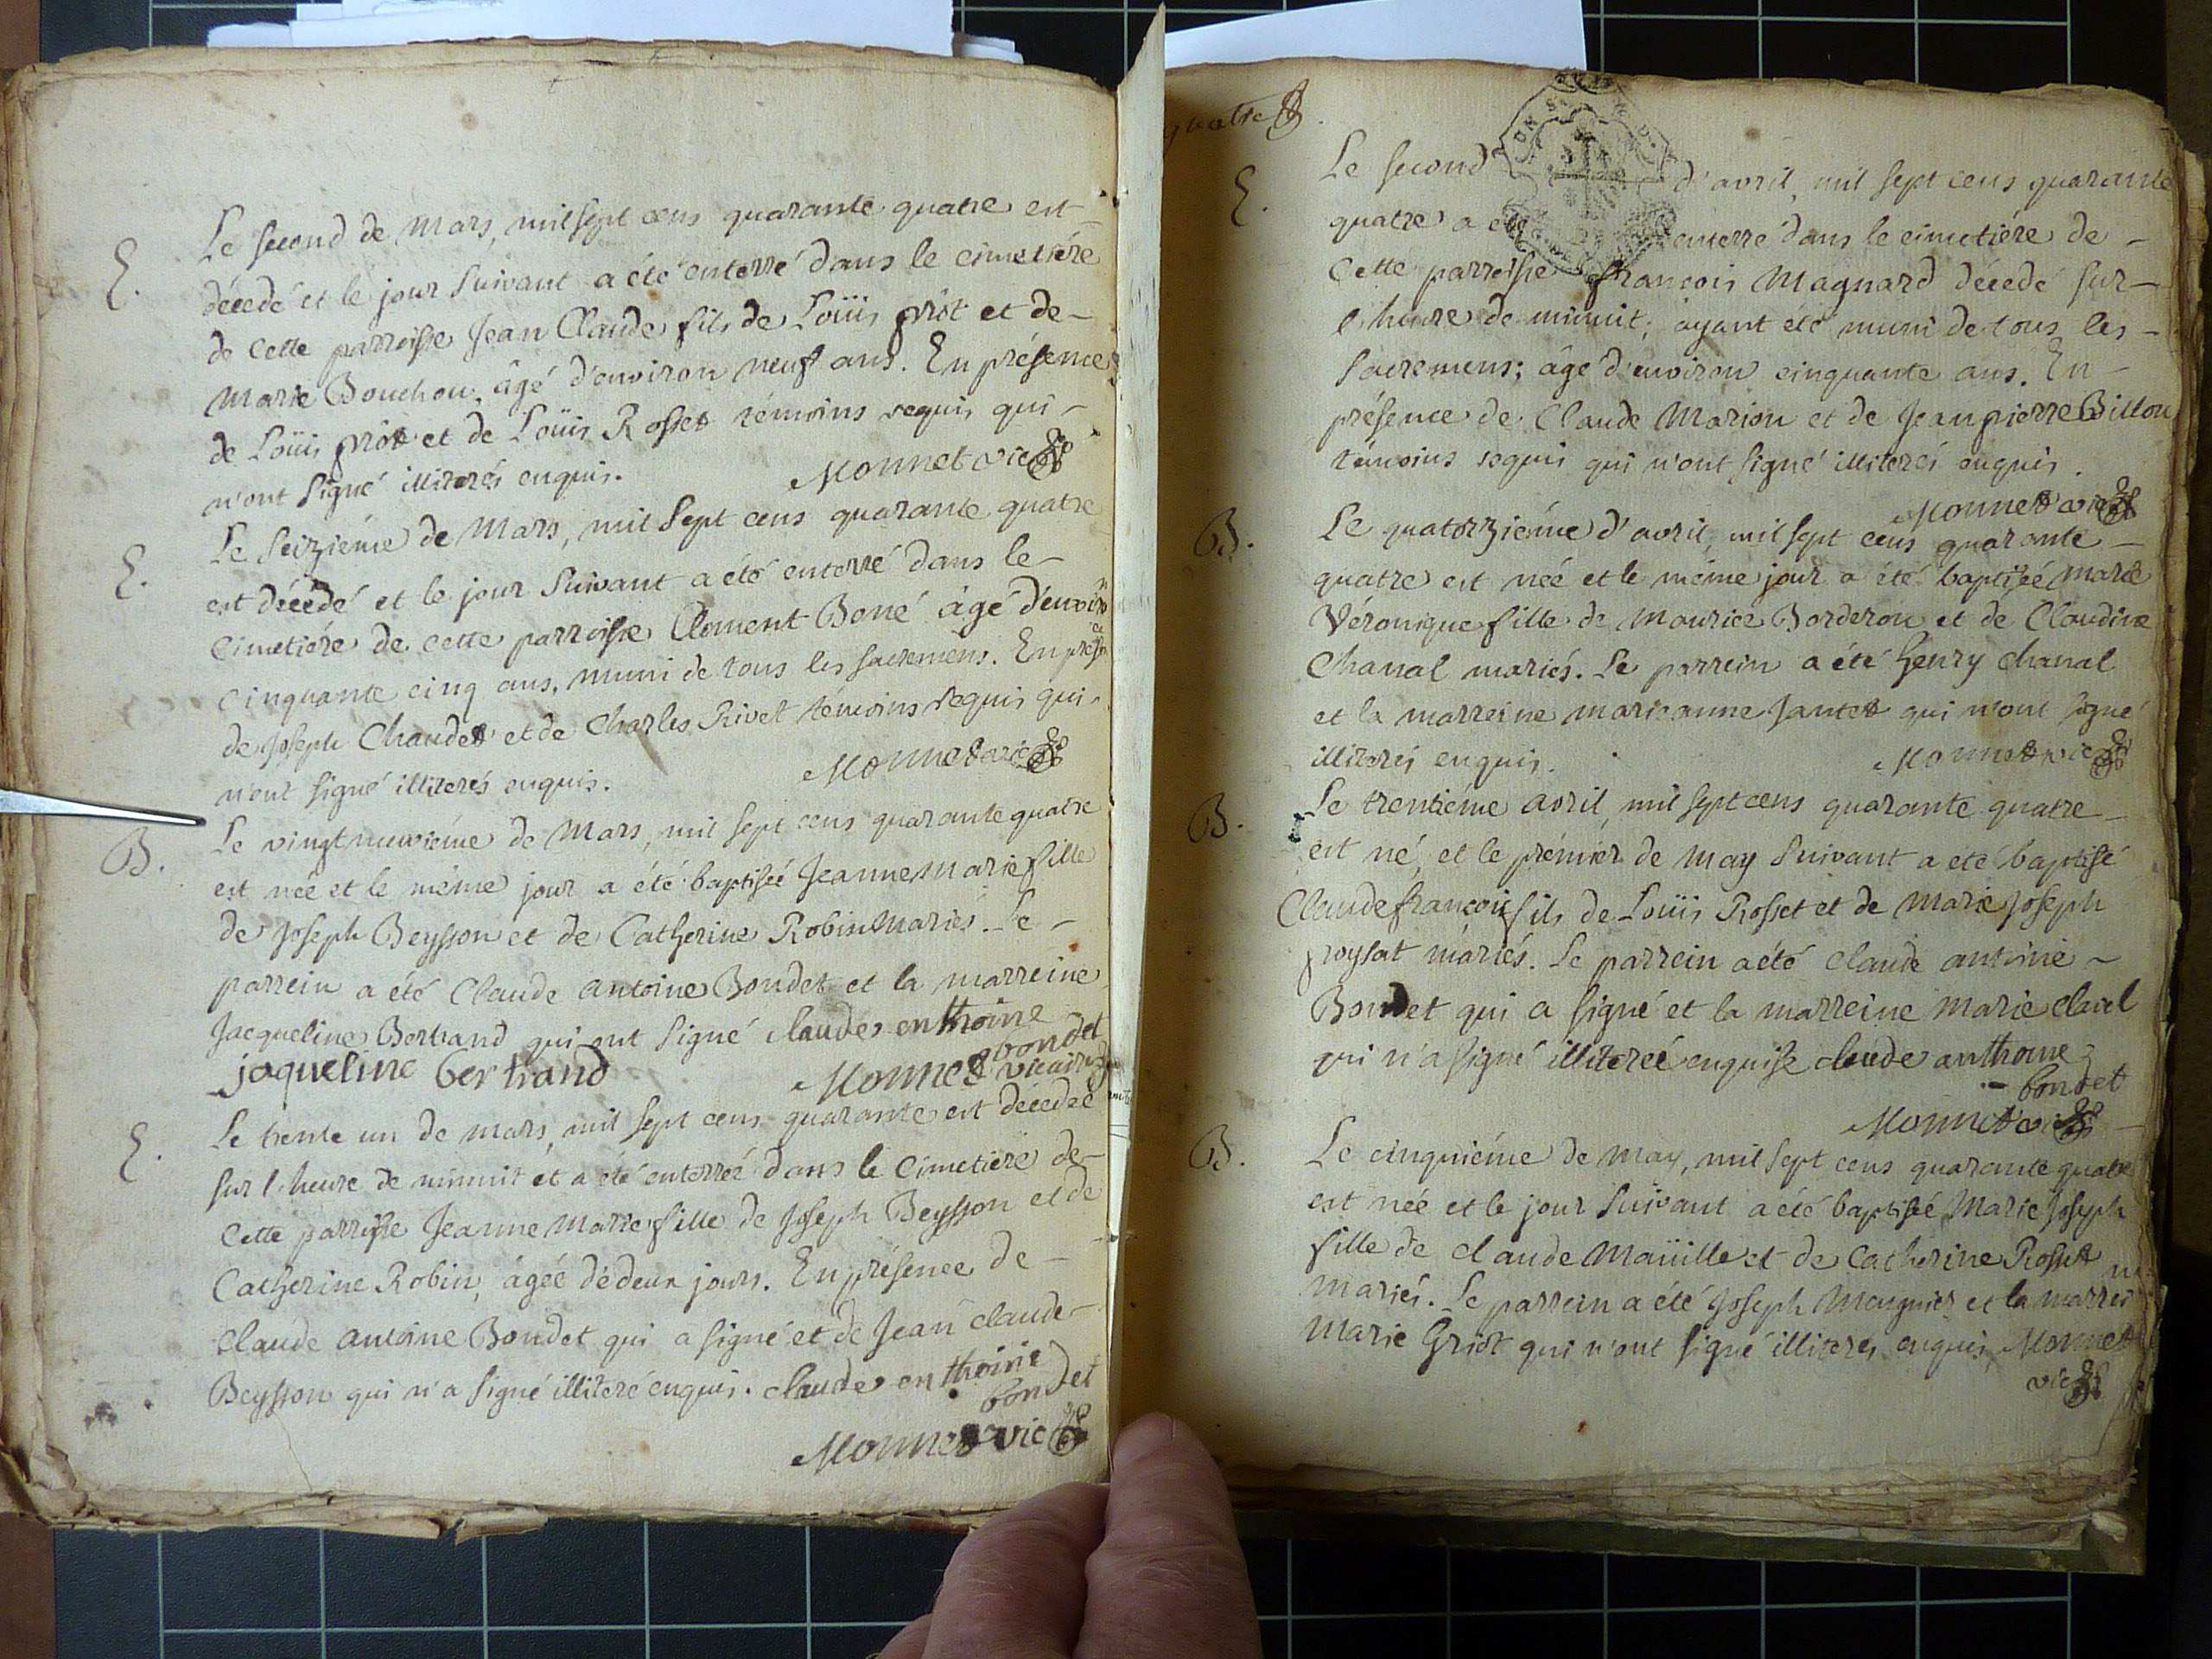 E.
Le second de Mars, mil sept cens quarante quatre est
décedé et le jour suivant a été enterré dans le cimetiére
de cette parroisse Jean Claude fils de Loüis prôt et de
Marie Bouchou, âgé d'environ neuf ans. En présence
de Loüis prôt et de Loüis Rosset témoins requis qui
n'ont signé illiterés enquis.
Monnet vic
E.
Le seiziéme de Mars, mil sept cens quarante quatre
est décédé et le jour suivant a été enterré dans le
cimetiére de cette parroisse Clement Boné âgé d'environ
cinquante cinq ans, muni de tous les sacremens. En présence
de Joseph Chaudet et de Charles Rivet témoins requis qui
n'ont signé illiterés enquis.
Monnet vic
B.
Le vingt neuviéme de Mars, mil sept cens quarante quatre
est née et le méme jour a été baptisée Jeanne Marie fille
de Joseph Beysson et de Catherine Robin Mariés. Le
parrein a été Claude antoine Bondet et la marreine
Jacqueline Bertrand qui ont signé claude enthoine
bondet
jaqueline bertrand
Monnet vicaire
E.
Le trente un de mars, mil sept cens quarante est décedée
sur l'heure de minuit et a été enterrée dans le cimetiére de
cette parroisse Jeanne Marie fille de Joseph Beysson et de
Catherine Robin, âgée de deux jours. En présence de
Claude antoine Bondet qui a signé et de Jean claude
Beysson qui n'a signé illiteré enquis. claude enthoine
bondet
Monnet vic
quatre
E.
Le second d'avril, mil sept cens quarante
quatre a été enterré dans le cimetiére de
cette parroisse françois Magnard décedé sur
l'heure de minuit, ayant été muni de tous les
sacremens; âgé d'environ cinquante ans. En
présence de Claude Marion et de Jean pierre Billou
témoins requis qui n'ont signé illiterés enquis.
Monnet vic
B.
Le quatorziéme d'avril, mil sept cens quarante
quatre est née et le méme jour a été baptisée Marie
Véronique fille de Maurice Borderon et de Claudine
Chanal mariés. Le parrein a été henry chanal
et la marreine marie anne Jantet qui n'ont signé
illiterés enquis.
Monnet vic
B.
Le trentiéme avril, mil sept cens quarante quatre
est né, et le prémier de may suivant a été baptisé
Claude françois fils de Loüis Rosset et de Marie Joseph
mariés. Le parrein a été claude antoine
Bondet qui a signé et la marreine Marie clavel
qui n'a signé illiterée enquise claude anthoine
bondet
Monnet vic
B.
Le cinquiéme de may, mil sept cens quarante quatre
est née et le jour suivant a été baptisée Marie Joseph
fille de claude Maüille et de Catherine Rosset
Mariés. Le parrein a été Joseph Mognier et la marrei
Marie Griôt qui n'ont signé illiterés enquis Monnet
vic